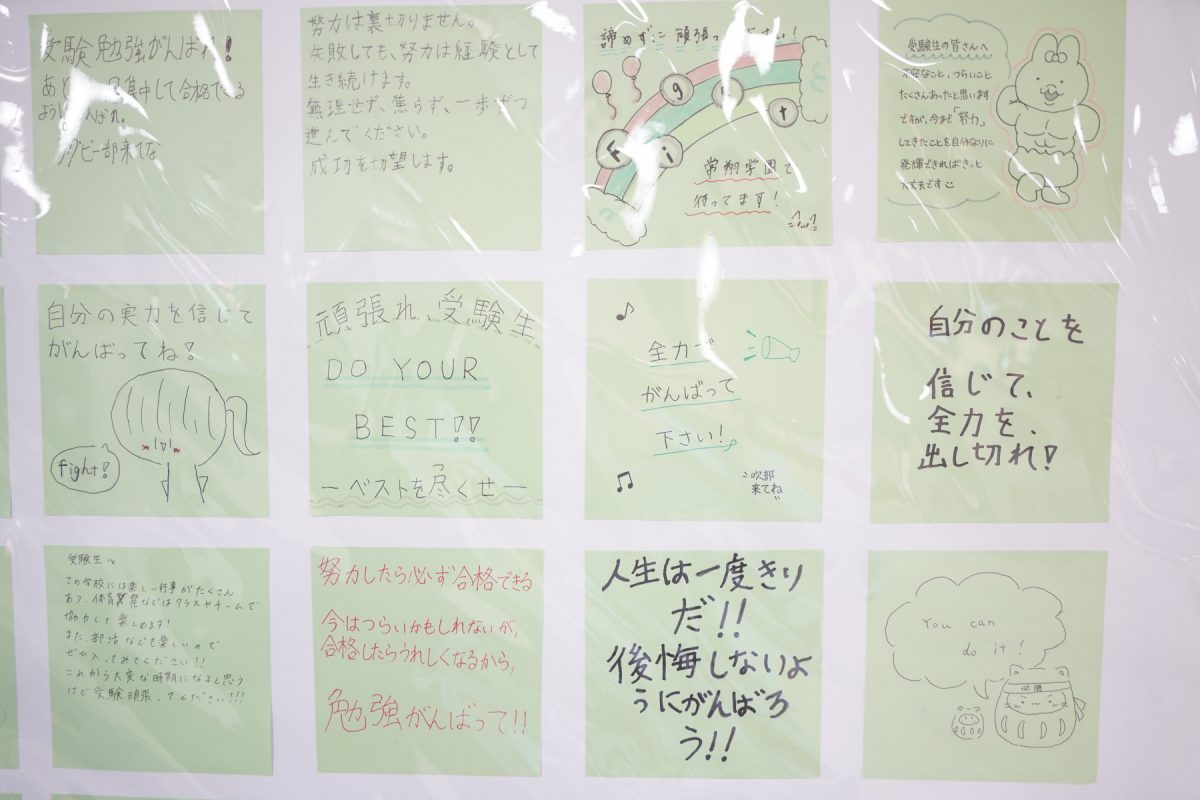 受験勉強がんばれ!
あと 集中して合格できる
よう んばれ。
ラグビー部来てな
努力は裏切りません。
失敗しても、努力は経験として
生き続けます。
無理せず、焦らず、一歩ずつ
進んでください。
成功を切望します。
諦めずに頑張っ さい!
Fight
常翔学園で
待ってます!
受験生の皆さんへ
不安なこと、つらいこと
たくさんあったと思います
ですが、今まで「努力」
してきたことを自分なりに
発揮できればきっと
大丈夫です
自分の実力を信じて
がんばってね!
fight!
頑張れ、受験生
DO YOUR
BEST!!
ーベストを尽くせー
全力で
がんばって
下さい!
吹部
来てね
自分のことを
信じて、
全力を、
出し切れ!
受験生へ
この学校には楽しい行事がたくさん
あり、体育祭などはクラスやチームで
協力して楽しめます!
また、部活なども楽しいので
ぜひ入ってみてください!!
これから大変な時期になると思う
けど受験頑張ってください!!!
努力したら必ず合格できる
今はつらいかもしれないが、
合格したらうれしくなるから、
勉強がんばって!!
人生は一度きり
だ!!
後悔しないよ
うにがんばろ
う!!
You can
do it!
必勝